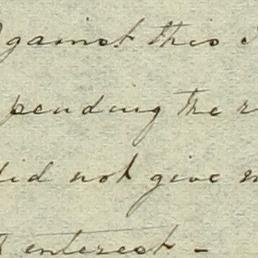 against this
pending the
did not give
interest -